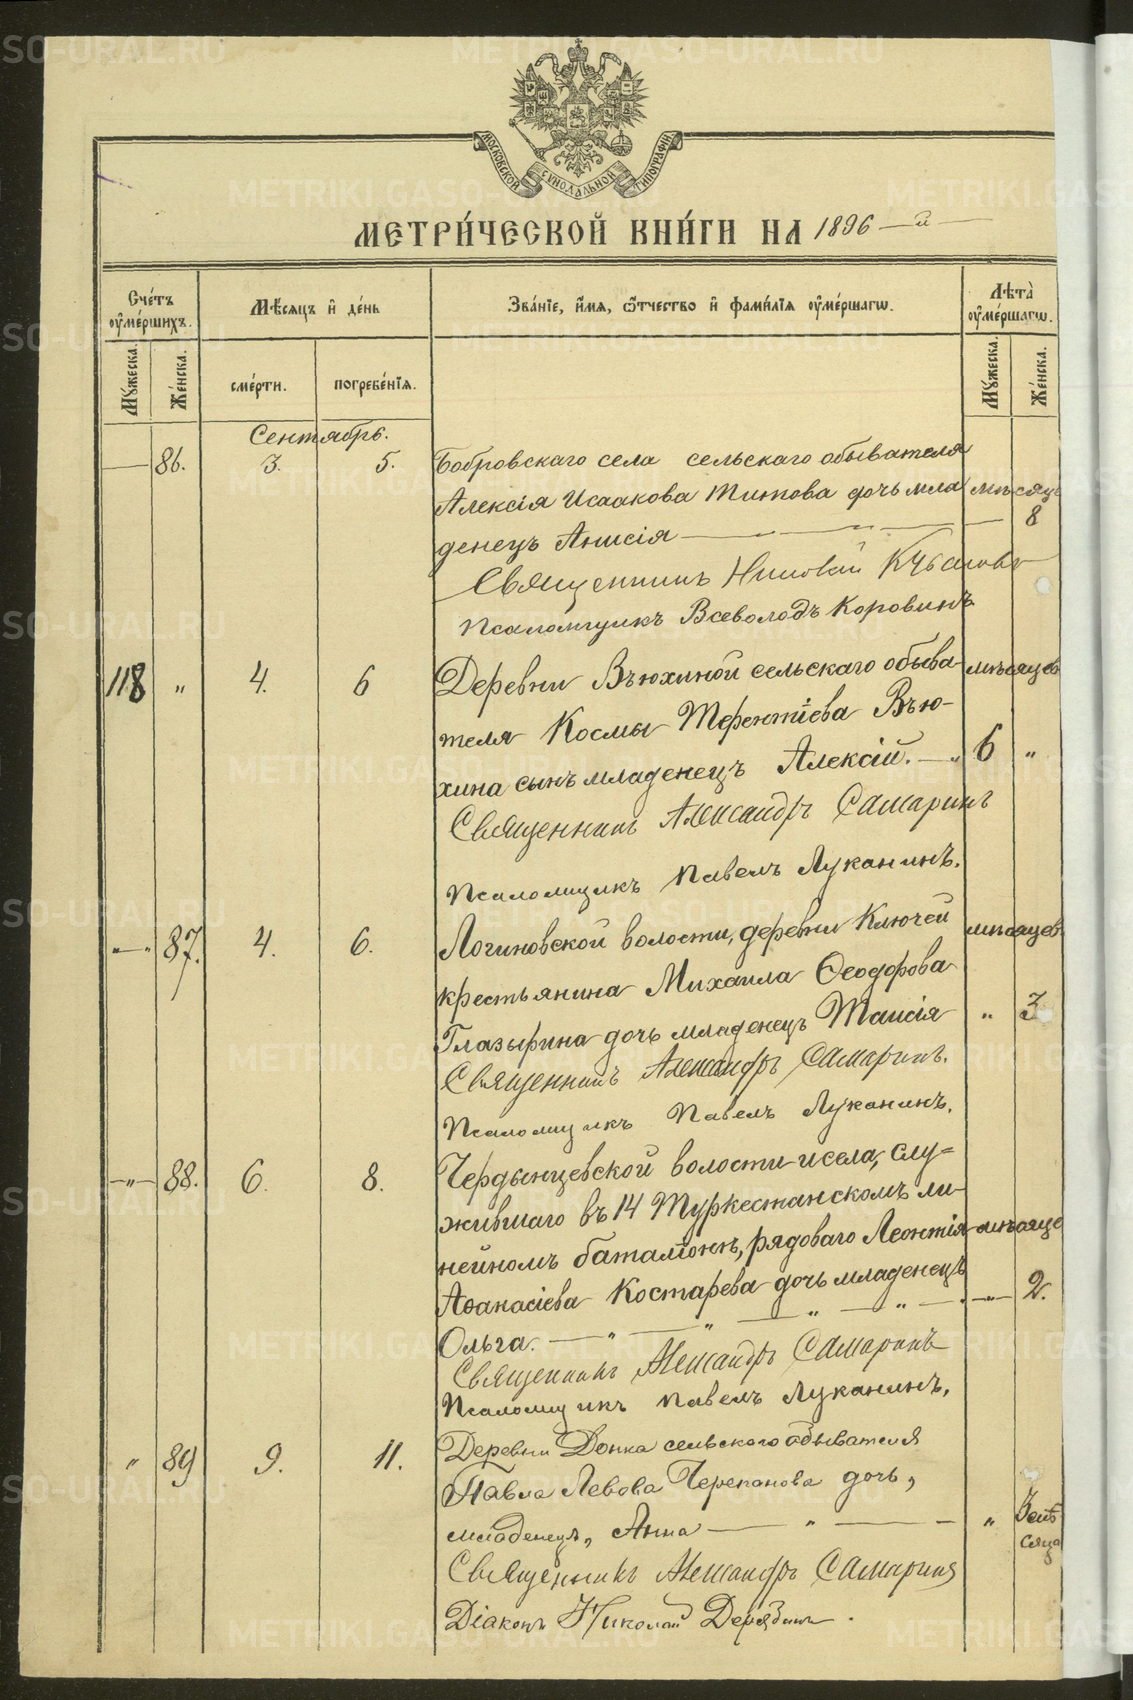 МОСКОВСКОЙ СУНОДАЛЬНОЙ ТИПОГРАФІИ
МЕТРИ́ЧЕСКОЙ КНИ́ГИ НА 1896 —й—
Сче́тъ оу҆ме́ршихъ.
Мѣ́сяцъ и҆ де́нь
Зва́нїе, и҆́мя, ѻ҆́тчество и҆ фами́лїя оу҆ме́ршагѡ.
Лѣта̀ оу҆ме́ршагѡ.
Му́жеска.
Же́нска.
сме́рти.
погребе́нїя.
Му́жеска.
Же́нска.
Сентябрь.
— 86. 3. 5. Бобровскаго села сельскаго обывателя
Алексія Исаакова Титова дочь мла мѣсяцъ
денецъ Анисія — " — — 8
Священникъ Николай
Псаломщикъ Всеволодъ Коровинъ
118 " 4. 6 Деревни Вьюхиной сельскаго обыва- мѣсяцев
теля Космы Терентіева Вью-
хина сынъ младенецъ Алексій. — " 6 "
Священникъ Александръ Самаринъ
Псаломщикъ Павелъ Луканинъ.
-"-" 87. 4. 6. Логиновской волости, деревни Ключей мѣсяцев
крестьянина Михаила Ѳеодорова
Глазырина дочь младенецъ Таисія " 3
Священникъ Александръ Самаринъ.
Псаломщикъ Павелъ Луканинъ.
—"— 88. 6. 8. Чердынцевской волости и села, слу=
жившаго въ 14 Туркестанскомъ ли-
нейномъ баталіонѣ, рядоваго Леонтія мѣсяце
Аѳанасіева Костарева дочь младенецъ —"— 2.
Ольга. — " — " — " — " —
Священникъ Александръ Самаринъ
Псаломщикъ Павелъ Луканинъ.
" 89 9. 11. Деревни Волка сельскаго обывателя
Павла Левова Черепанова дочь,
младенецъ, Анна — " — - " 3 мѣ
сяца
Священникъ Александръ Самаринъ
Діаконъ Николай Дерябинъ.
METRIKI.GASO-URAL.RU